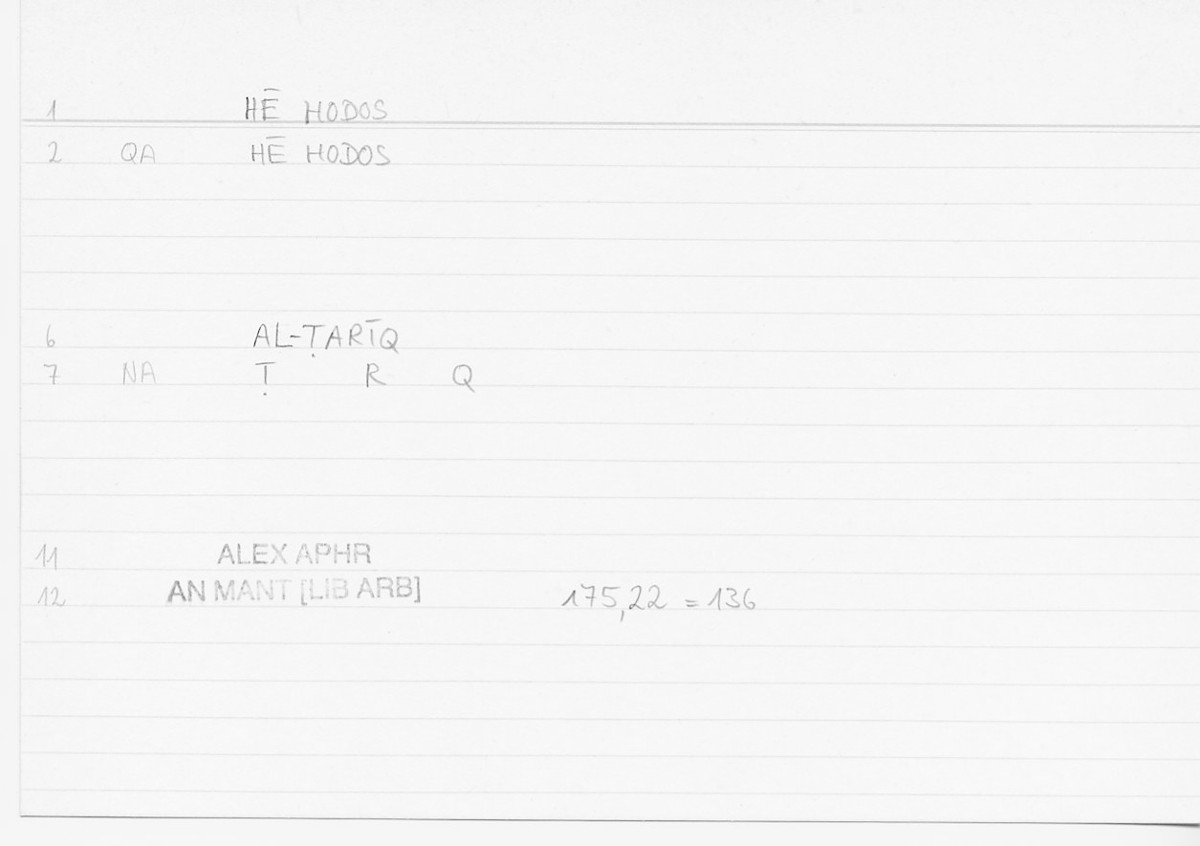 1 HĒ HODOS
2 QA HĒ HODOS
6 AL-ṬARĪQ
7 NA Ṭ R Q
11 ALEX APHR
12 AN MANT [LIB ARB] 175,22 = 136